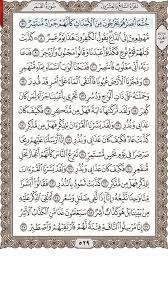 الجزء السابع والعشرون سورة القمر
خُشَّعًا أَبْصَٰرُهُمْ يَخْرُجُونَ مِنَ ٱلْأَجْدَاثِ كَأَنَّهُمْ جَرَادٌ مُّنتَشِرٌ ٧
مُّهْطِعِينَ إِلَى ٱلدَّاعِ يَقُولُ ٱلْكَٰفِرُونَ هَٰذَا يَوْمٌ عَسِرٌ ٨ ۞ كَذَّبَتْ
قَبْلَهُمْ قَوْمُ نُوحٍ فَكَذَّبُوا۟ عَبْدَنَا وَقَالُوا۟ مَجْنُونٌ وَٱزْدُجِرَ ٩ فَدَعَا
رَبَّهُۥٓ أَنِّى مَغْلُوبٌ فَٱنتَصِرْ ١٠ فَفَتَحْنَآ أَبْوَٰبَ ٱلسَّمَآءِ بِمَآءٍ مُّنْهَمِرٍ ١١
وَفَجَّرْنَا ٱلْأَرْضَ عُيُونًا فَٱلْتَقَى ٱلْمَآءُ عَلَىٰٓ أَمْرٍ قَدْ قُدِرَ ١٢
وَحَمَلْنَٰهُ عَلَىٰ ذَاتِ أَلْوَٰحٍ وَدُسُرٍ ١٣ تَجْرِى بِأَعْيُنِنَا جَزَآءً لِّمَن كَانَ
كُفِرَ ١٤ وَلَقَد تَّرَكْنَٰهَآ ءَايَةً فَهَلْ مِن مُّدَّكِرٍ ١٥ فَكَيْفَ كَانَ
عَذَابِى وَنُذُرِ ١٦ وَلَقَدْ يَسَّرْنَا ٱلْقُرْءَانَ لِلذِّكْرِ فَهَلْ مِن مُّدَّكِرٍ ١٧
كَذَّبَتْ عَادٌ فَكَيْفَ كَانَ عَذَابِى وَنُذُرِ ١٨ إِنَّآ أَرْسَلْنَا عَلَيْهِمْ رِيحًا
صَرْصَرًا فِى يَوْمِ نَحْسٍ مُّسْتَمِرٍّ ١٩ تَنزِعُ ٱلنَّاسَ كَأَنَّهُمْ أَعْجَازُ نَخْلٍ
مُّنقَعِرٍ ٢٠ فَكَيْفَ كَانَ عَذَابِى وَنُذُرِ ٢١ وَلَقَدْ يَسَّرْنَا ٱلْقُرْءَانَ
لِلذِّكْرِ فَهَلْ مِن مُّدَّكِرٍ ٢٢ كَذَّبَتْ ثَمُودُ بِٱلنُّذُرِ ٢٣ فَقَالُوٓا۟ أَبَشَرًا
مِّنَّا وَٰحِدًا نَّتَّبِعُهُۥٓ إِنَّآ إِذًا لَّفِى ضَلَٰلٍ وَسُعُرٍ ٢٤ أَءُلْقِىَ ٱلذِّكْرُ
عَلَيْهِ مِنۢ بَيْنِنَا بَلْ هُوَ كَذَّابٌ أَشِرٌ ٢٥ سَيَعْلَمُونَ غَدًا مَّنِ ٱلْكَذَّابُ ٱلْأَشِرُ ٢٦
إِنَّا مُرْسِلُوا۟ ٱلنَّاقَةِ فِتْنَةً لَّهُمْ فَٱرْتَقِبْهُمْ وَٱصْطَبِرْ ٢٧
٥٢٩